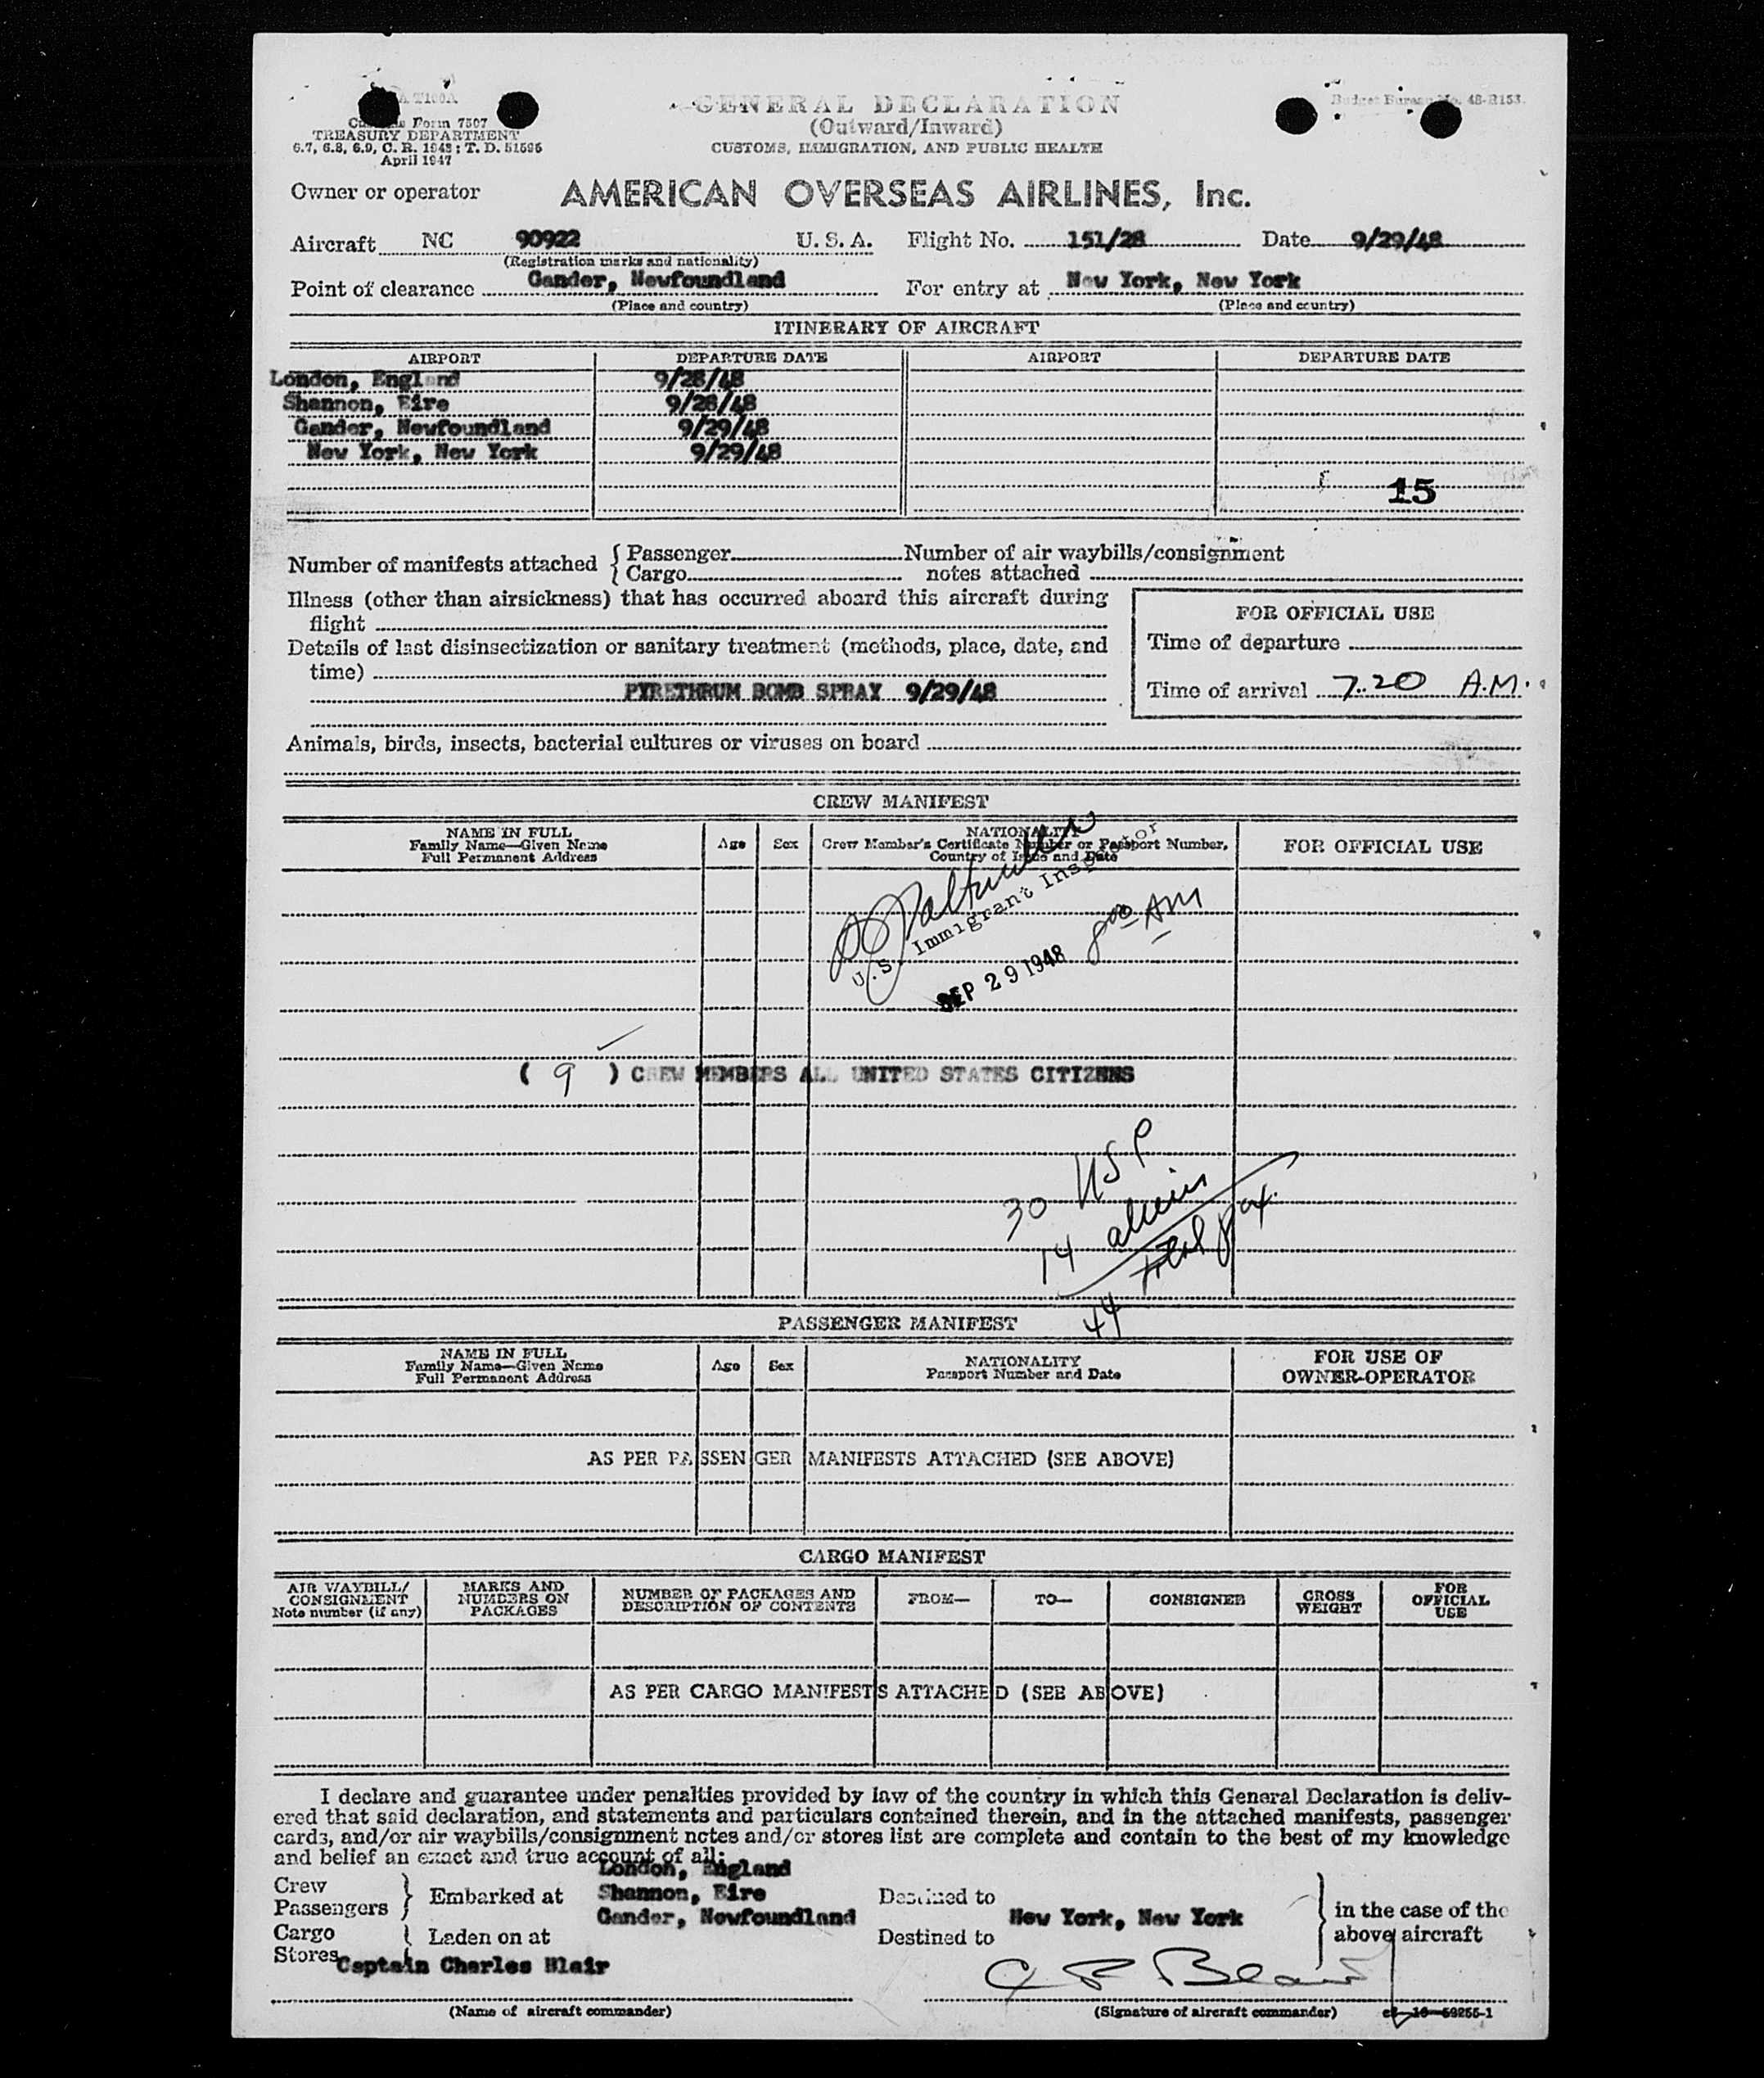 A T100A
Customs Form 7507
TREASURY DEPARTMENT
6.7, 6.8, 6.9, C. R. 1943; T. D. 51595
April 1947
GENERAL DECLARATION
(Outward/Inward)
CUSTOMS, IMMIGRATION, AND PUBLIC HEALTH
Budget Bureau No. 48-R153.
Owner or operator AMERICAN OVERSEAS AIRLINES, Inc.
Aircraft NC 90922 U. S. A. Flight No. 151/28 Date 9/29/48
(Registration marks and nationality)
Point of clearance Gander, Newfoundland For entry at New York, New York
(Place and country) (Place and country)
ITINERARY OF AIRCRAFT
AIRPORT DEPARTURE DATE AIRPORT DEPARTURE DATE
London, England 9/28/48
Shannon, Eire 9/28/48
Gander, Newfoundland 9/29/48
New York, New York 9/29/48
15
Number of manifests attached { Passenger Number of air waybills/consignment
Cargo notes attached
Illness (other than airsickness) that has occurred aboard this aircraft during
flight
Details of last disinsectization or sanitary treatment (methods, place, date, and
time)
PYRETHRUM BOMB SPRAY 9/29/48
FOR OFFICIAL USE
Time of departure
Time of arrival 7.20 A.M.
Animals, birds, insects, bacterial cultures or viruses on board
CREW MANIFEST
NAME IN FULL
Family Name—Given Name
Full Permanent Address
Age
Sex
NATIONALITY
Crew Member's Certificate Number or Passport Number,
Country of Issue and Date
FOR OFFICIAL USE
U.S. Immigrant Inspector
SEP 29 1948 8:00 AM
( 9 ) CREW MEMBERS ALL UNITED STATES CITIZENS
30 USP
14 aliens
44 total pax.
PASSENGER MANIFEST
NAME IN FULL
Family Name—Given Name
Full Permanent Address
Age
Sex
NATIONALITY
Passport Number and Date
FOR USE OF
OWNER-OPERATOR
AS PER PASSENGER MANIFESTS ATTACHED (SEE ABOVE)
CARGO MANIFEST
AIR WAYBILL/
CONSIGNMENT
Note number (if any)
MARKS AND
NUMBERS ON
PACKAGES
NUMBER OF PACKAGES AND
DESCRIPTION OF CONTENTS
FROM—
TO—
CONSIGNED
GROSS
WEIGHT
FOR
OFFICIAL
USE
AS PER CARGO MANIFESTS ATTACHED (SEE ABOVE)
I declare and guarantee under penalties provided by law of the country in which this General Declaration is deliv-
ered that said declaration, and statements and particulars contained therein, and in the attached manifests, passenger
cards, and/or air waybills/consignment notes and/or stores list are complete and contain to the best of my knowledge
and belief an exact and true account of all:
London, England
Crew
Passengers } Embarked at Shannon, Eire Destined to
Gander, Newfoundland New York, New York in the case of the
Cargo
Stores } Laden on at Destined to above aircraft
Captain Charles Blair C F Blair
(Name of aircraft commander) (Signature of aircraft commander) 16—53255-1